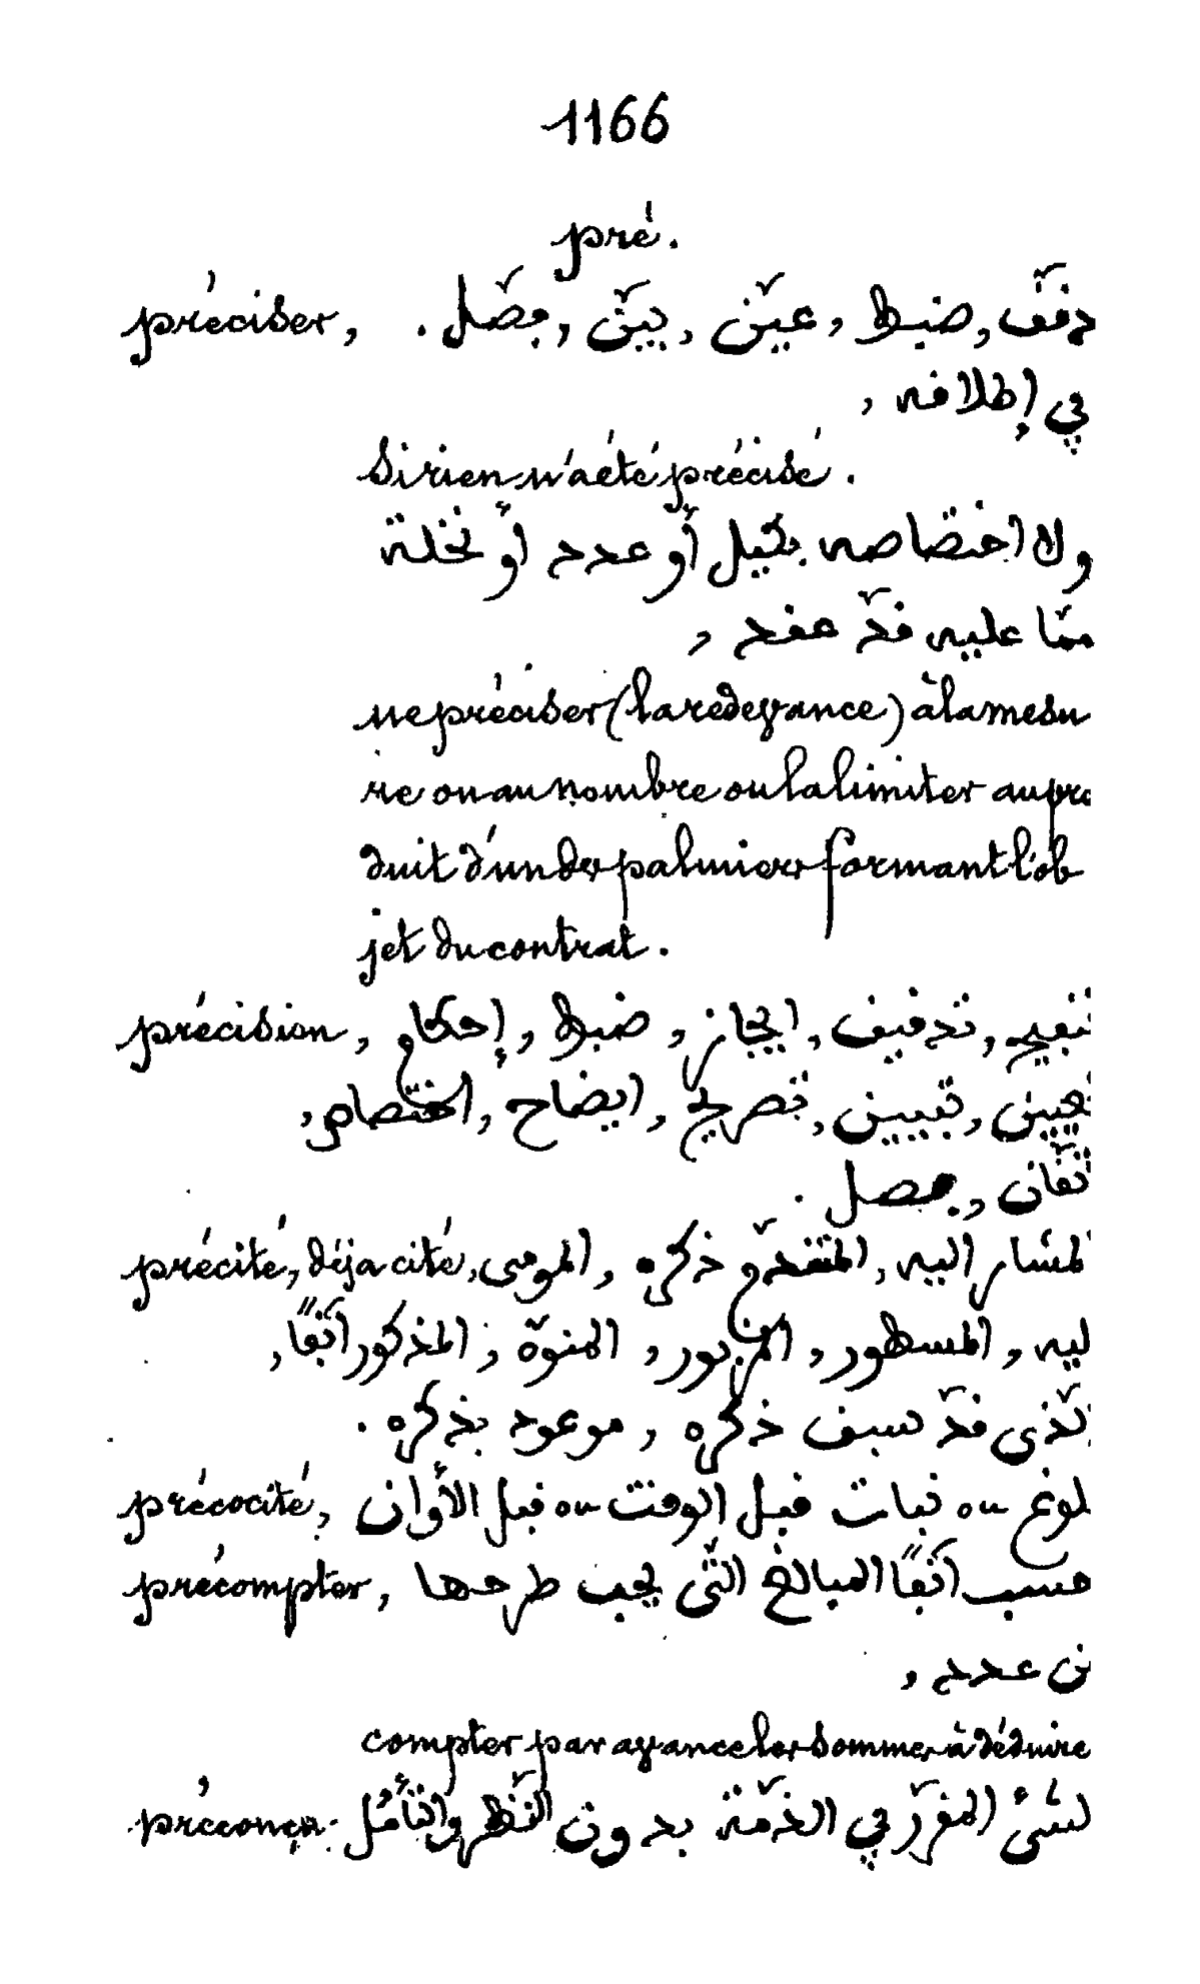 1166
pré.
préciser, دقّق, ضبط, عيّن, بيّن, فصّل.
في إطلاقه,
si rien n'a été précisé.
ولا اختصاصه بكيل أو عدد أو نخلة
ممّا عليه قد عقد,
ne préciser (la redevance) à la mesu
re ou au nombre ou la limiter au pro
duit d'un des palmiers formant l'ob
jet du contrat.
précision, تنقيح, تدقيق, ايجاز, ضبط, إحكام,
تعيين, تبيين, تصريح, ايضاح, اختصاص,
اتّقان, فصل.
précité, déja cité, المشار اليه, المتقدّم ذكره, المومى
اليه, المسطور, المزبور, المنوّه, المذكور آنفًا,
الّذى قد سبق ذكره, موعود بذكره.
précocité, بلوغ ou نبات قبل الوقت ou قبل الأوان
précompter, حسب آنفًا المبالغ الّتى يجب طرحها
من عدد,
compter par avance les sommes à déduire
préconçu. الشىء المقرّر في الذمّة بدون النّظر والتّأمّل